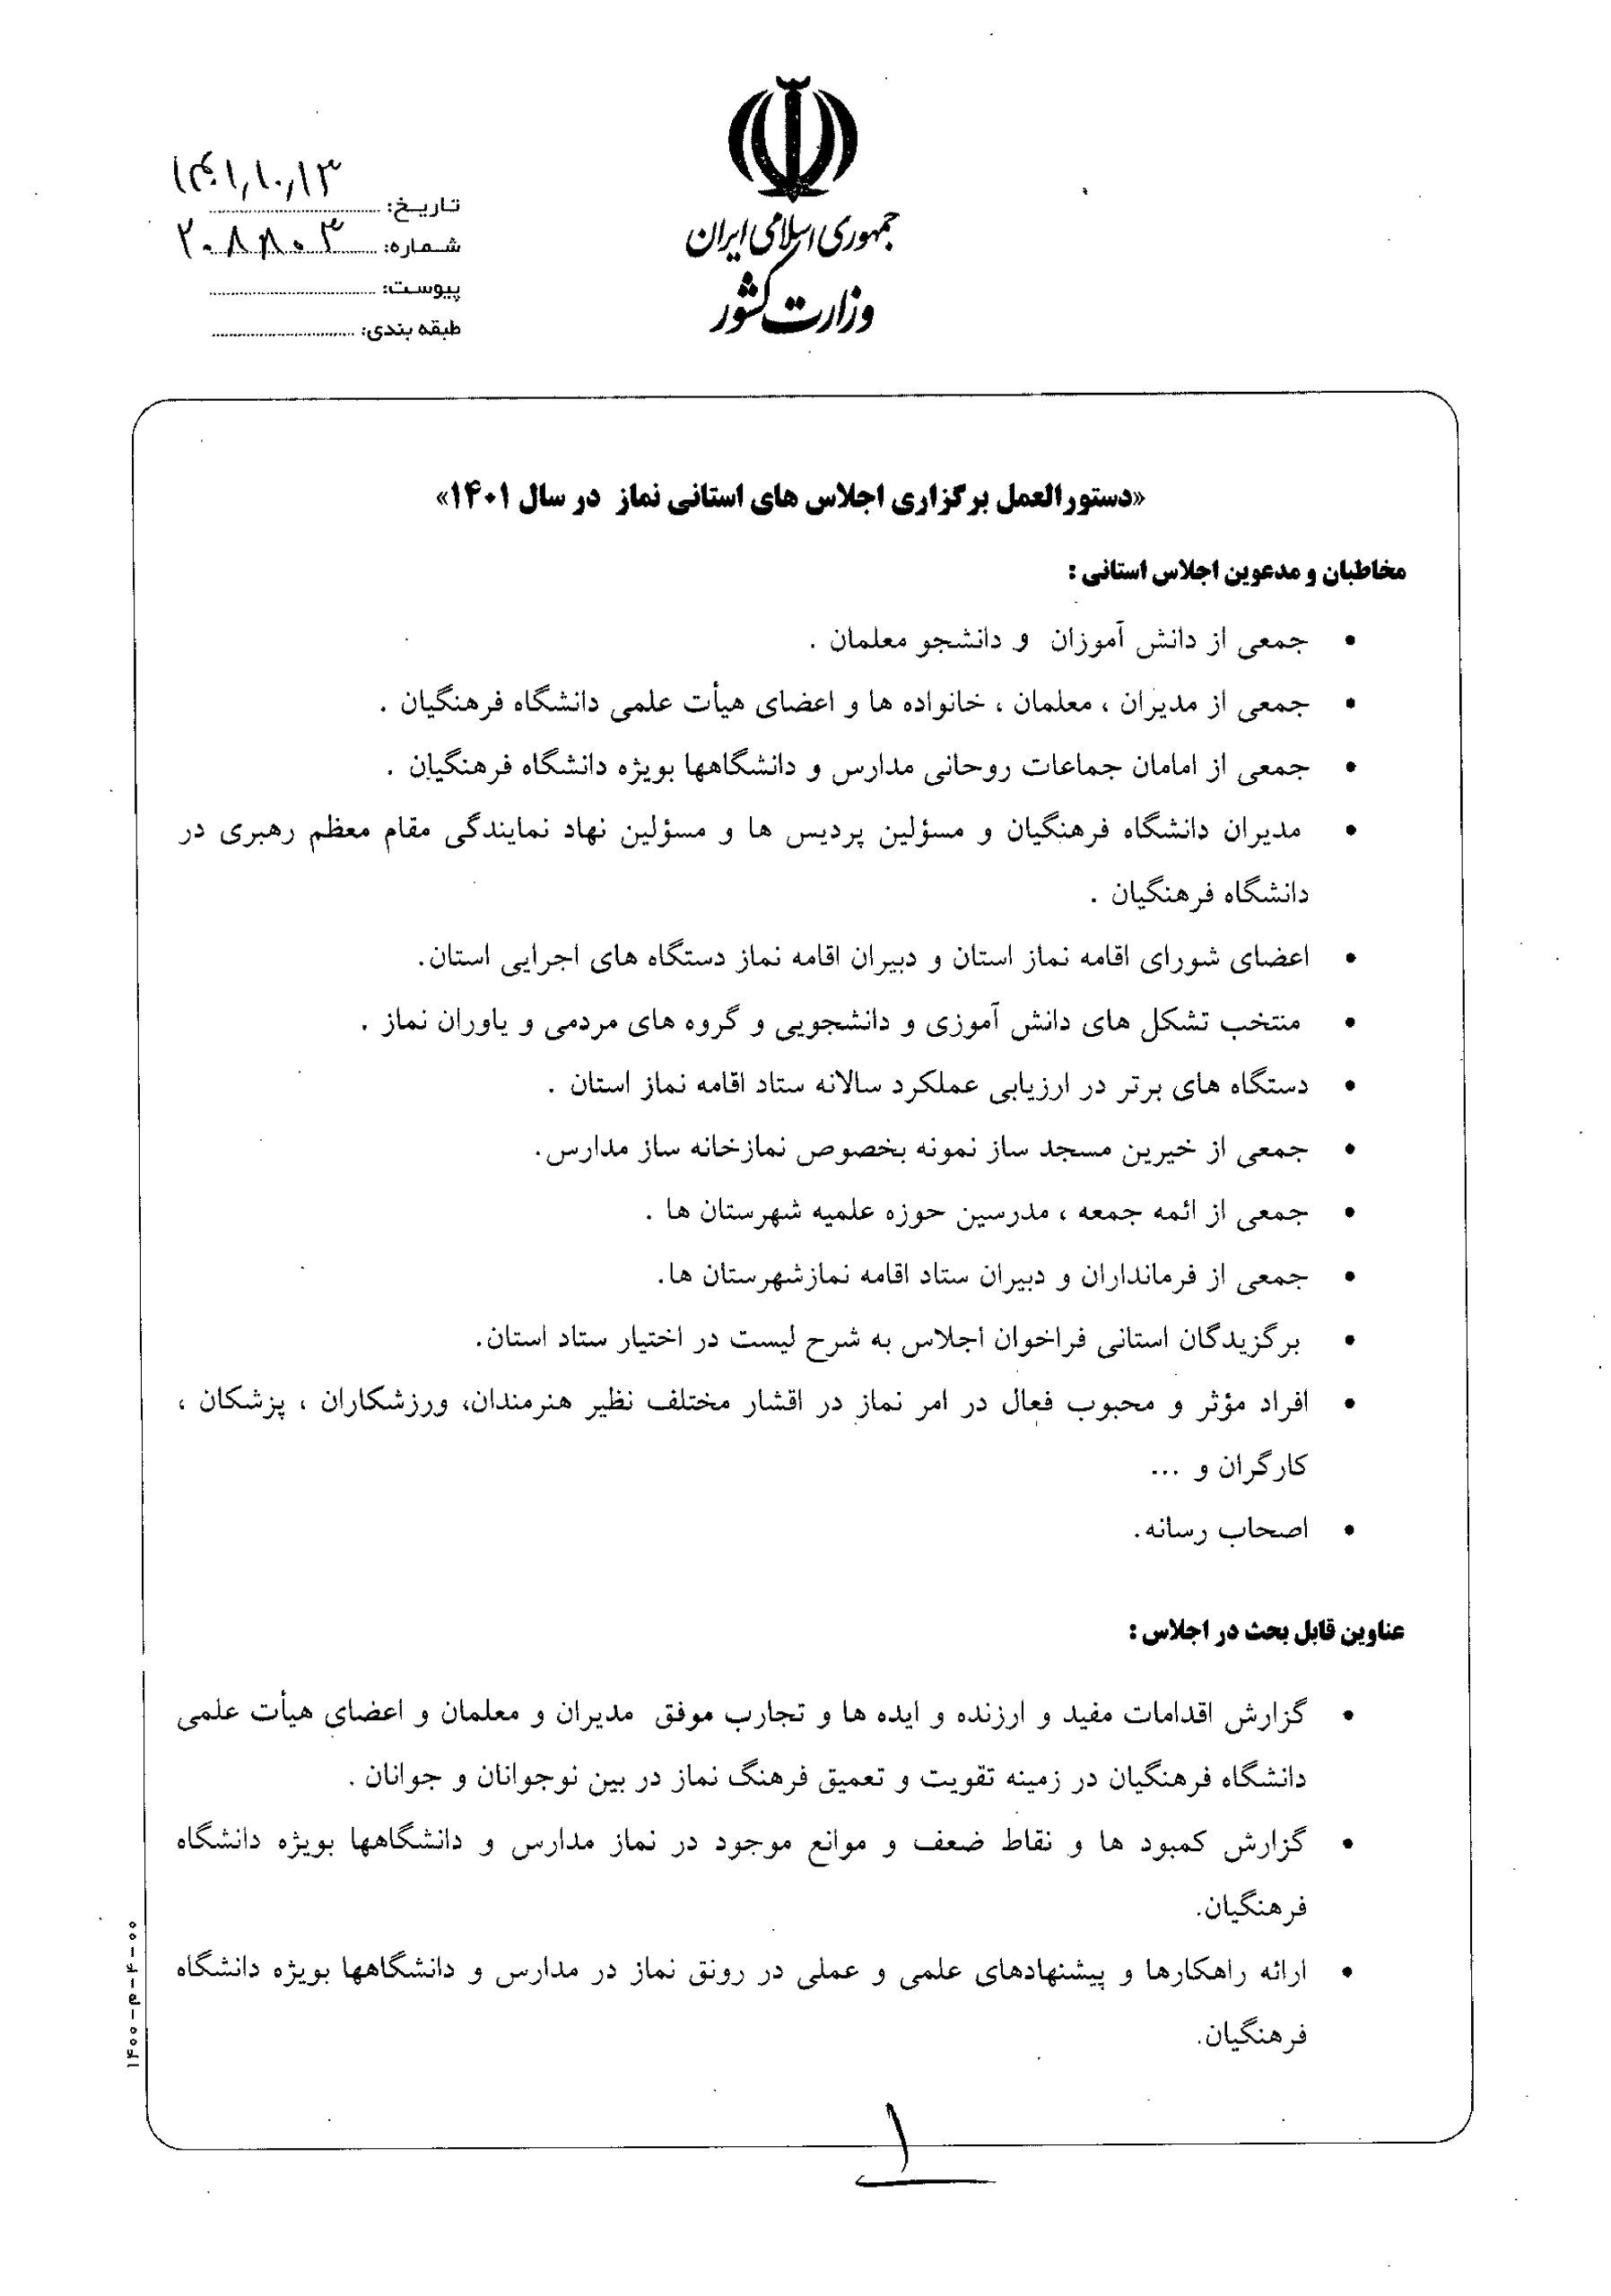 جمهوری اسلامی ایران
وزارت کشور
تاریخ: ۱۴۰۱,۱۰,۱۳
شماره: ۲۰۸۸۰۳
پیوست:
طبقه بندی:
«دستورالعمل برگزاری اجلاس های استانی نماز در سال ۱۴۰۱»
مخاطبان و مدعوین اجلاس استانی :
• جمعی از دانش آموزان و دانشجو معلمان .
• جمعی از مدیران ، معلمان ، خانواده ها و اعضای هیأت علمی دانشگاه فرهنگیان .
• جمعی از امامان جماعات روحانی مدارس و دانشگاهها بویژه دانشگاه فرهنگیان .
• مدیران دانشگاه فرهنگیان و مسؤلین پردیس ها و مسؤلین نهاد نمایندگی مقام معظم رهبری در
دانشگاه فرهنگیان .
• اعضای شورای اقامه نماز استان و دبیران اقامه نماز دستگاه های اجرایی استان.
• منتخب تشکل های دانش آموزی و دانشجویی و گروه های مردمی و یاوران نماز .
• دستگاه های برتر در ارزیابی عملکرد سالانه ستاد اقامه نماز استان .
• جمعی از خیرین مسجد ساز نمونه بخصوص نمازخانه ساز مدارس.
• جمعی از ائمه جمعه ، مدرسین حوزه علمیه شهرستان ها .
• جمعی از فرمانداران و دبیران ستاد اقامه نمازشهرستان ها.
• برگزیدگان استانی فراخوان اجلاس به شرح لیست در اختیار ستاد استان.
• افراد مؤثر و محبوب فعال در امر نماز در اقشار مختلف نظیر هنرمندان، ورزشکاران ، پزشکان ،
کارگران و ...
• اصحاب رسانه.
عناوین قابل بحث در اجلاس :
• گزارش اقدامات مفید و ارزنده و ایده ها و تجارب موفق مدیران و معلمان و اعضای هیأت علمی
دانشگاه فرهنگیان در زمینه تقویت و تعمیق فرهنگ نماز در بین نوجوانان و جوانان .
• گزارش کمبود ها و نقاط ضعف و موانع موجود در نماز مدارس و دانشگاهها بویژه دانشگاه
فرهنگیان.
• ارائه راهکارها و پیشنهادهای علمی و عملی در رونق نماز در مدارس و دانشگاهها بویژه دانشگاه
فرهنگیان.
۱۴۰۰-م-۴-۰۰
۱